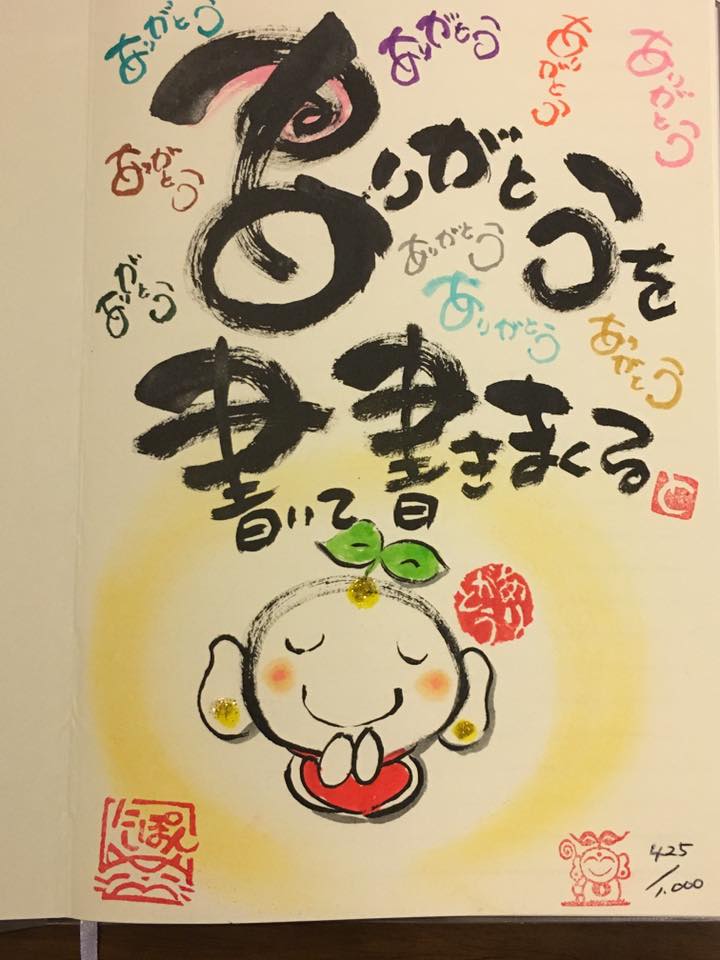 ありがとう
ありがとう
ありがとう
ありがとう
ありがとうを
ありがとう
ありがとう
ありがとう
ありがとう
ありがとう
書いて書きまくる
ありがとう
にしぽん
425
/1,000